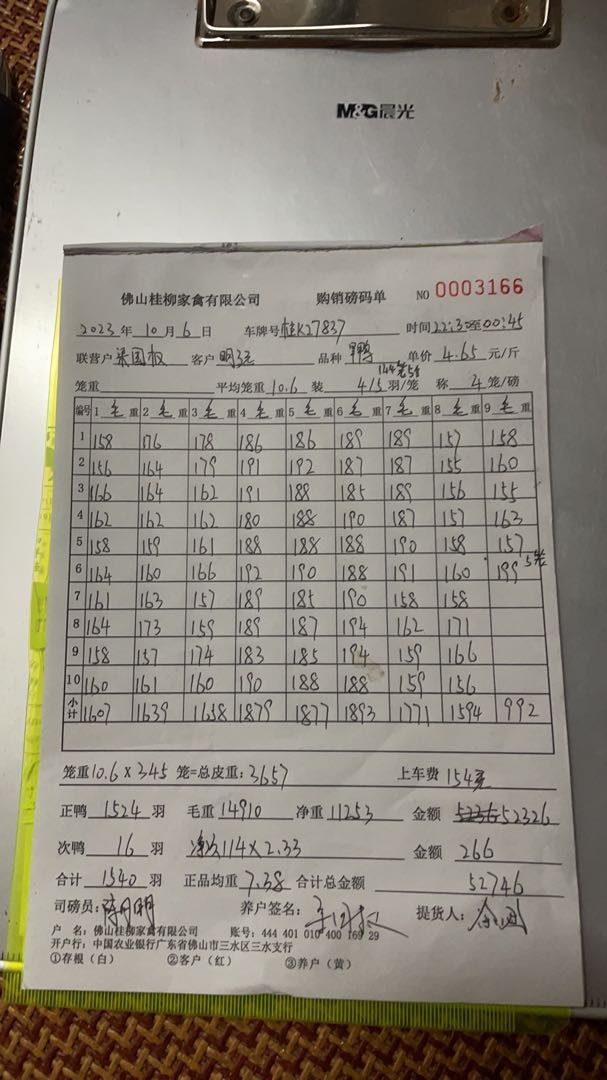 M&G晨光
佛山桂柳家禽有限公司 购销磅码单 NO 0003166
2023年10月6日 车牌号桂K27837 时间22:30至00:45
联营户梁国权 客户明记 品种鸭 单价4.65元/斤
笼重 平均笼重10.6 装4/5羽/笼 称4笼/磅
编号 1毛重 2毛重 3毛重 4毛重 5毛重 6毛重 7毛重 8毛重 9毛重
1 158 176 178 186 186 189 189 157 158
2 156 164 179 191 192 187 187 155 160
3 166 164 162 191 188 185 189 156 155
4 162 162 162 180 188 190 187 157 163
5 158 159 161 188 188 188 190 158 157
6 164 160 166 192 190 188 191 160 199 5笼
7 161 163 157 189 185 190 158 158
8 164 173 159 189 187 194 162 171
9 158 157 174 183 185 194 159 166
10 160 161 160 190 188 188 159 156
小计 1607 1639 1658 1879 1877 1893 1771 1594 992
笼重10.6×345笼=总皮重:3657 上车费154元
正鸭1524羽 毛重14910 净重11253 金额52326
次鸭16羽 114×2.33 金额266
合计1540羽 正品均重7.38 合计总金额52746
司磅员: 养户签名: 提货人:
户 名:佛山桂柳家禽有限公司 账号:444 401 010 400 169 29
开户行:中国农业银行广东省佛山市三水区三水支行
①存根(白) ②客户(红) ③养户(黄)